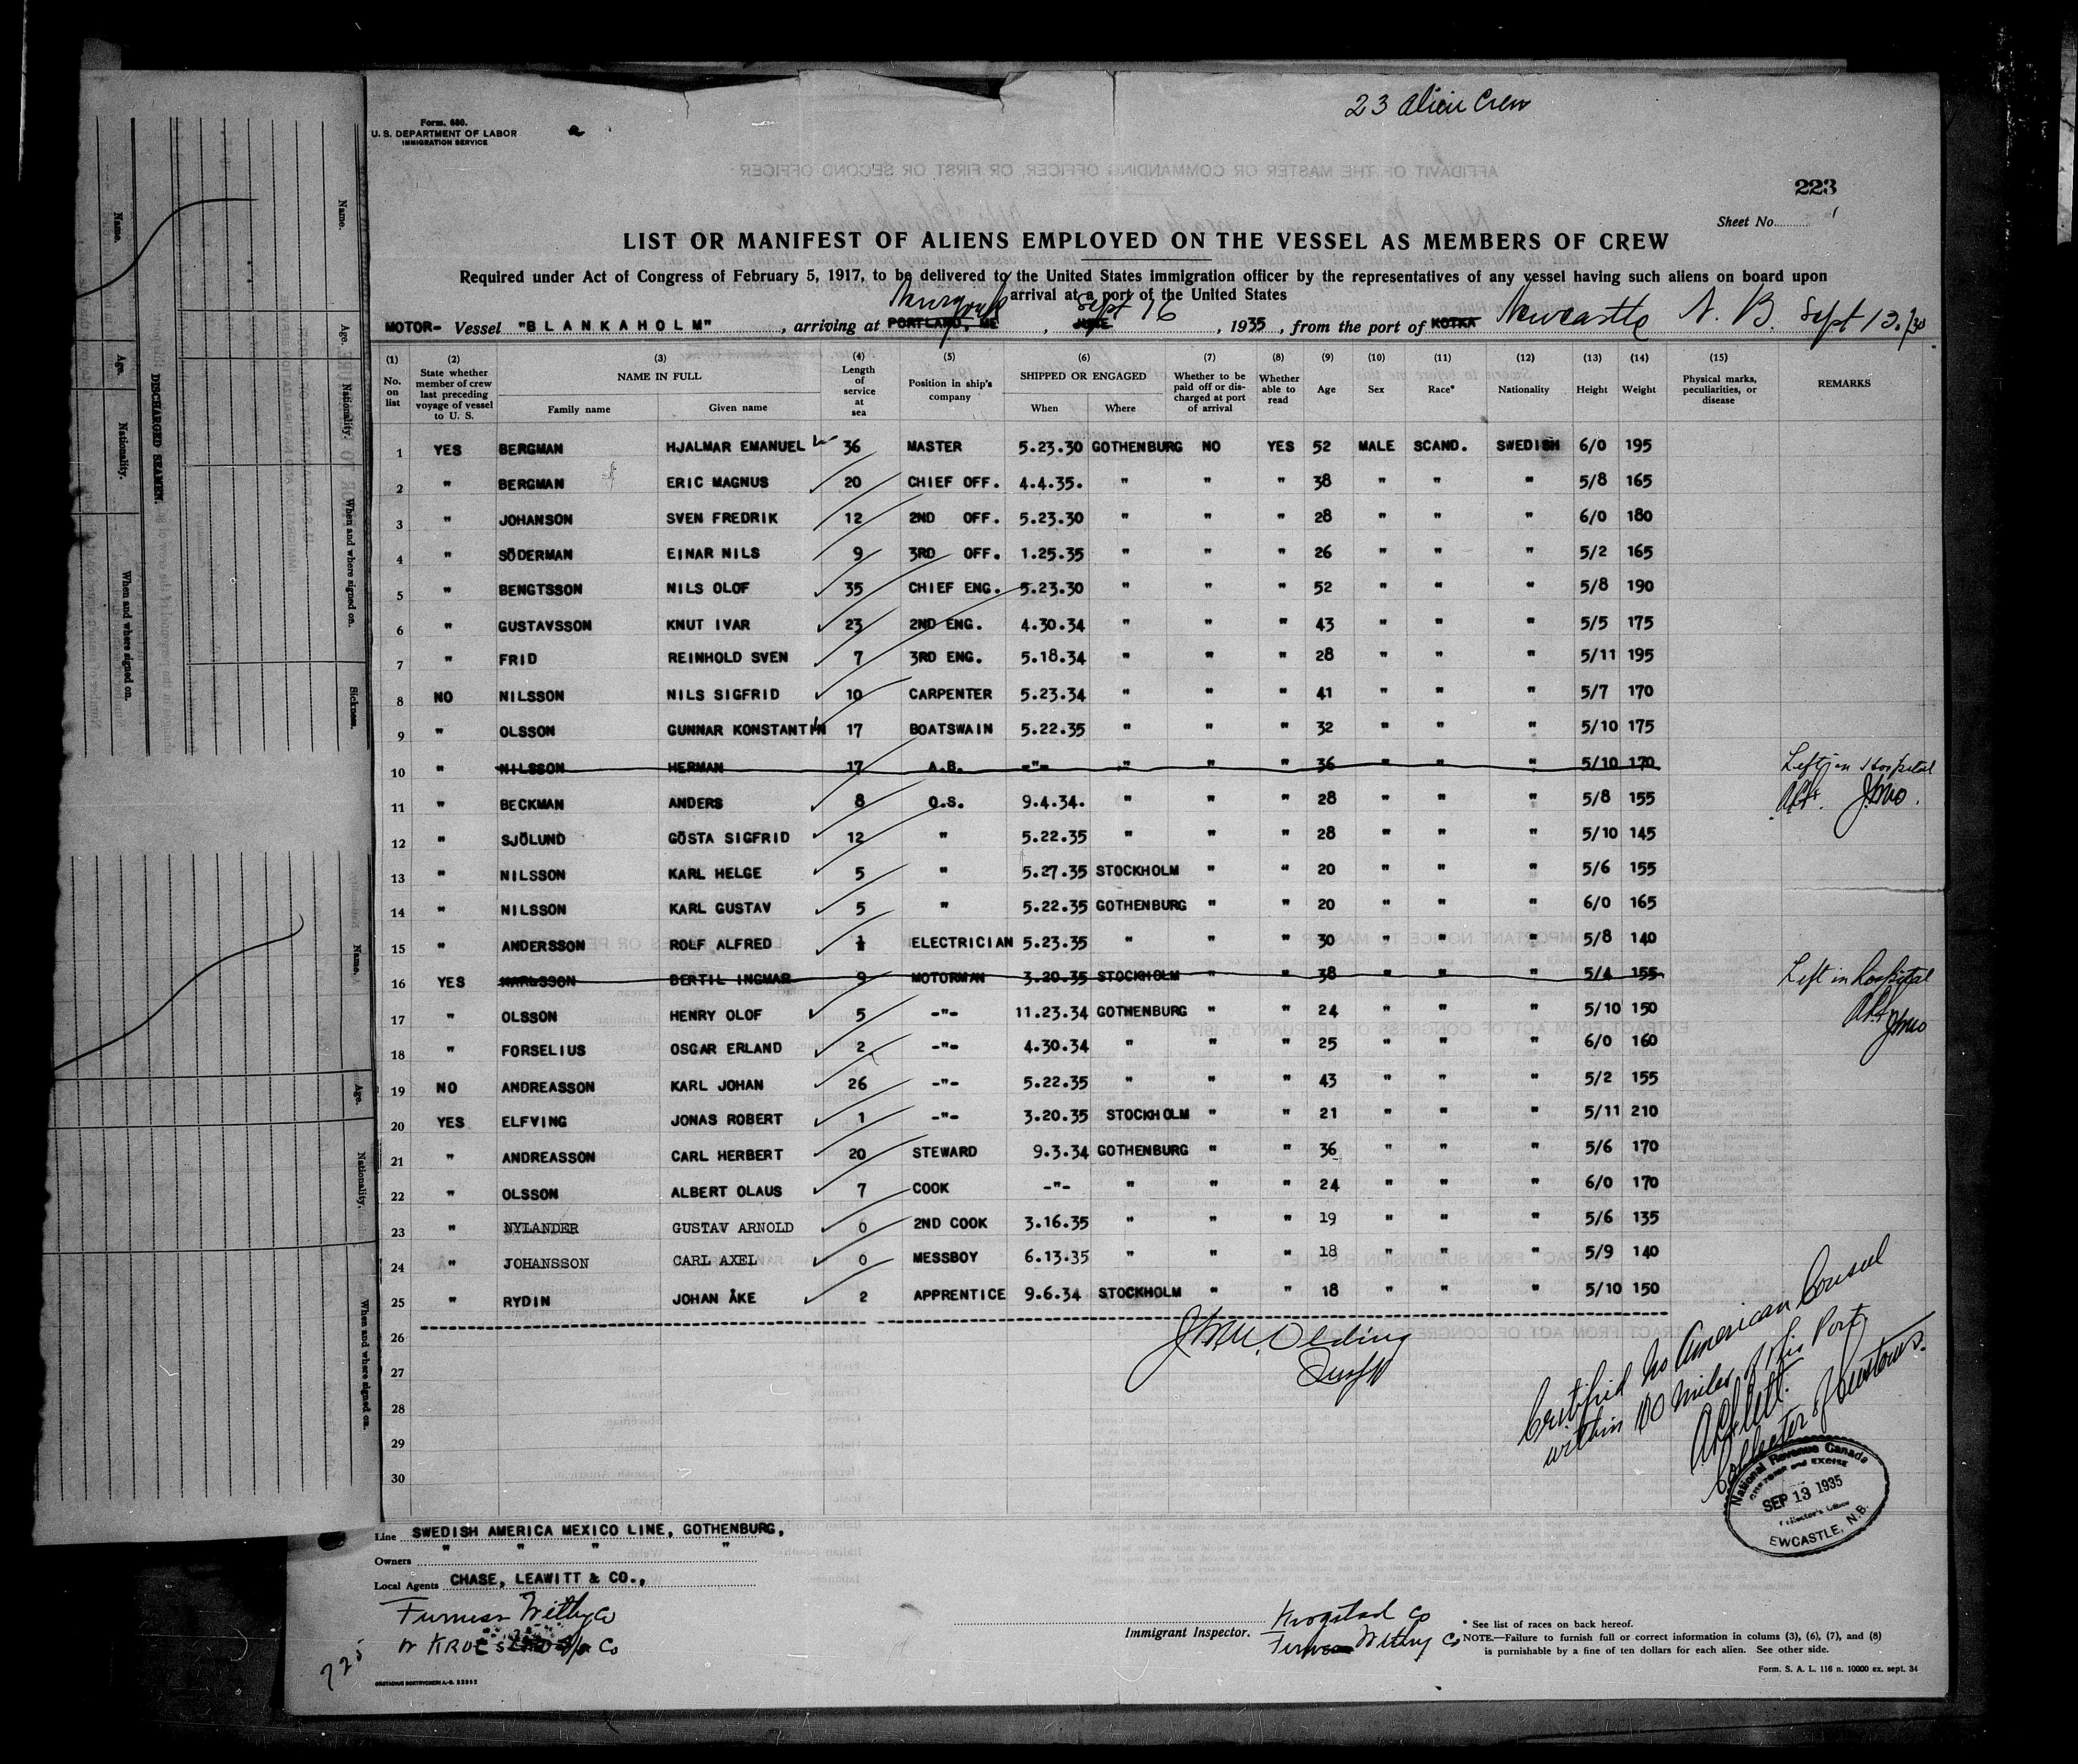 23 alien Crew
Form. 680.
U. S. DEPARTMENT OF LABOR
IMMIGRATION SERVICE
223
Sheet No. 1
LIST OR MANIFEST OF ALIENS EMPLOYED ON THE VESSEL AS MEMBERS OF CREW
Required under Act of Congress of February 5, 1917, to be delivered to the United States immigration officer by the representatives of any vessel having such aliens on board upon
arrival at a port of the United States
MOTOR- Vessel "BLANKAHOLM", arriving at PORTLAND, ME New York, JUNE Sept 16, 1935, from the port of KOTKA Newcastle N. B. Sept 13.
(1) (2) (3) (4) (5) (6) (7) (8) (9) (10) (11) (12) (13) (14) (15)
No. on list
State whether member of crew last preceding voyage of vessel to U. S.
NAME IN FULL
Family name Given name
Length of service at sea
Position in ship's company
SHIPPED OR ENGAGED
When Where
Whether to be paid off or discharged at port of arrival
Whether able to read
Age Sex Race* Nationality Height Weight
Physical marks, peculiarities, or disease
REMARKS
1 YES BERGMAN HJALMAR EMANUEL 36 MASTER 5.23.30 GOTHENBURG NO YES 52 MALE SCAND. SWEDISH 6/0 195
2 " BERGMAN ERIC MAGNUS 20 CHIEF OFF. 4.4.35. " " " 38 " " " 5/8 165
3 " JOHANSON SVEN FREDRIK 12 2ND OFF. 5.23.30 " " " 28 " " " 6/0 180
4 " SÖDERMAN EINAR NILS 9 3RD OFF. 1.25.35 " " " 26 " " " 5/2 165
5 " BENGTSSON NILS OLOF 35 CHIEF ENG. 5.23.30 " " " 52 " " " 5/8 190
6 " GUSTAVSSON KNUT IVAR 23 2ND ENG. 4.30.34 " " " 43 " " " 5/5 175
7 " FRID REINHOLD SVEN 7 3RD ENG. 5.18.34 " " " 28 " " " 5/11 195
8 NO NILSSON NILS SIGFRID 10 CARPENTER 5.23.34 " " " 41 " " " 5/7 170
9 " OLSSON GUNNAR KONSTANTIN 17 BOATSWAIN 5.22.35 " " " 32 " " " 5/10 175
10 " NILSSON HERMAN 17 A.B. -"- " " " 36 " " " 5/10 170 Left in Hospital
11 " BECKMAN ANDERS 8 O.S. 9.4.34. " " " 28 " " " 5/8 155
12 " SJÖLUND GÖSTA SIGFRID 12 " 5.22.35 " " " 28 " " " 5/10 145
13 " NILSSON KARL HELGE 5 " 5.27.35 STOCKHOLM " " 20 " " " 5/6 155
14 " NILSSON KARL GUSTAV 5 " 5.22.35 GOTHENBURG " " 20 " " " 6/0 165
15 " ANDERSSON ROLF ALFRED ½ ELECTRICIAN 5.23.35 " " " 30 " " " 5/8 140
16 YES KARLSSON BERTIL INGMAR 9 MOTORMAN 3.20.35 STOCKHOLM " " 38 " " " 5/4 155 Left in hospital
17 " OLSSON HENRY OLOF 5 -"- 11.23.34 GOTHENBURG " " 24 " " " 5/10 150
18 " FORSELIUS OSCAR ERLAND 2 -"- 4.30.34 " " " 25 " " " 6/0 160
19 NO ANDREASSON KARL JOHAN 26 -"- 5.22.35 " " " 43 " " " 5/2 155
20 YES ELFVING JONAS ROBERT 1 -"- 3.20.35 STOCKHOLM " " 21 " " " 5/11 210
21 " ANDREASSON CARL HERBERT 20 STEWARD 9.3.34 GOTHENBURG " " 36 " " " 5/6 170
22 " OLSSON ALBERT OLAUS 7 COOK -"- " " " 24 " " " 6/0 170
23 " NYLANDER GUSTAV ARNOLD 0 2ND COOK 3.16.35 " " " 19 " " " 5/6 135
24 " JOHANSSON CARL AXEL 0 MESSBOY 6.13.35 " " " 18 " " " 5/9 140
25 " RYDIN JOHAN ÅKE 2 APPRENTICE 9.6.34 STOCKHOLM " " 18 " " " 5/10 150
26
27
28
29
30
Certified no American Consul
within 100 miles of this Port
Collector of Customs.
National Revenue Canada
CUSTOMS AND EXCISE
SEP 13 1935
Collector's Office
EWCASTLE, N.B.
Line SWEDISH AMERICA MEXICO LINE, GOTHENBURG,
Owners " " " "
Local Agents CHASE, LEAWITT & CO.,
Furness Withy Co
Krogstad Co
Immigrant Inspector.
Furness Withy Co
* See list of races on back hereof.
NOTE.—Failure to furnish full or correct information in colums (3), (6), (7), and (8)
is punishable by a fine of ten dollars for each alien. See other side.
Form. S. A. L. 116 n. 10000 ex. sept. 34
725
DISCHARGED SEAMEN.
Name. Age. Nationality. When and where signed on.
Name. Age. Nationality. When and where signed on. Sickness.
Name. Age. Nationality. When and where signed on.